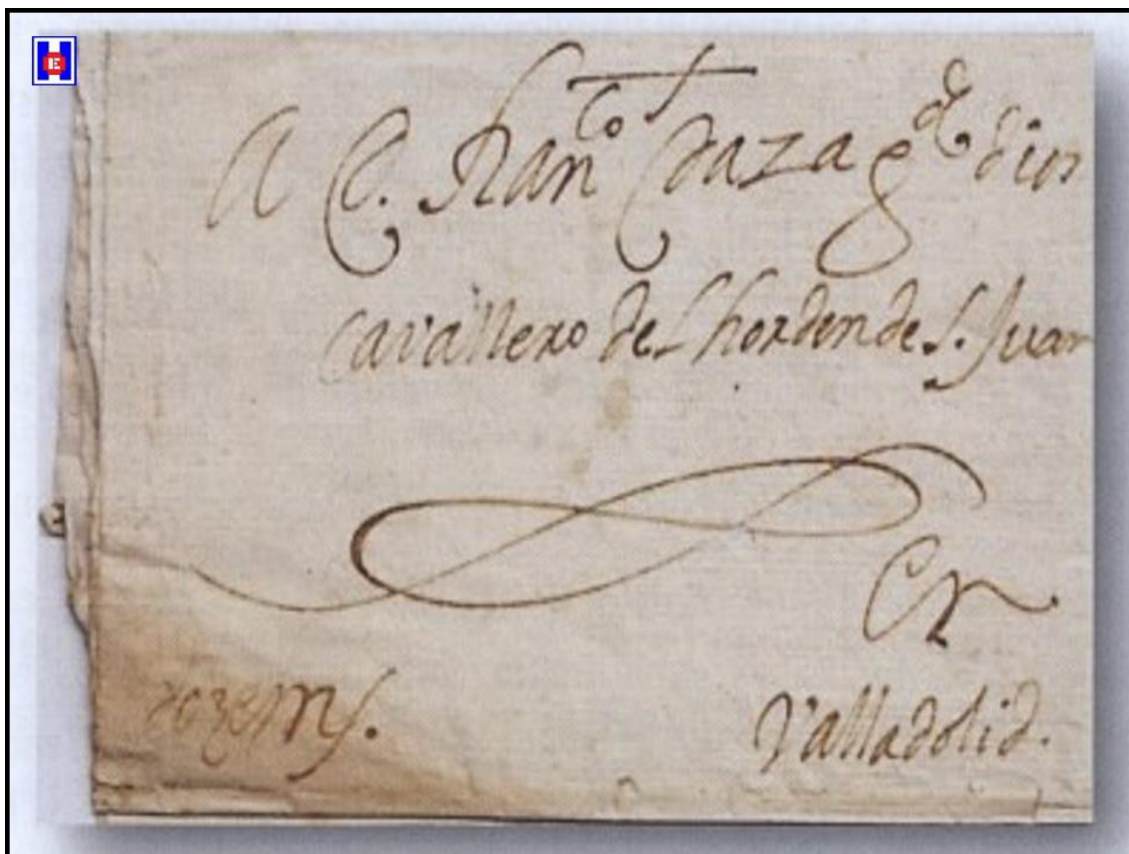 A D. Franco Daza gde dios
cavallero del horden de S. Juan
en
Valladolid.